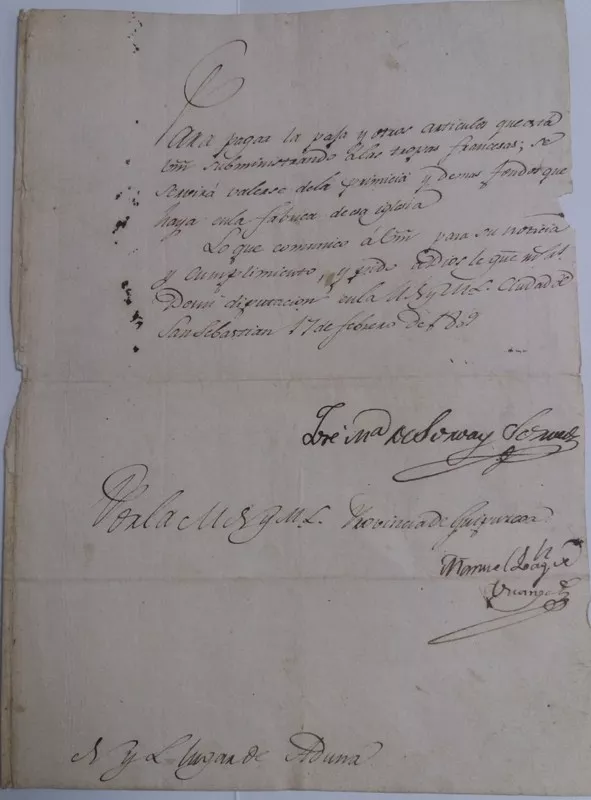 Para pagar la paja y otros articulos que esta
Vm̄ subministrando a las tropas francesas; se
servirá valerse de la primicia y demas fondos que
haya en la fabrica de esa iglesia
Lo que comunico á Vm̄ para su noticia
y cumplimiento, y pido a Dios le gue ms as.
De mi diputacion en la M N y M L. Ciudad de
San Sebastian 17 de febrero de 1809
José Ma de Soroa y Soroa
Por la M N y M L. Provincia de Guipuzcoa
Manuel Joaqn de
Uranga
N y L lugar de Aduna